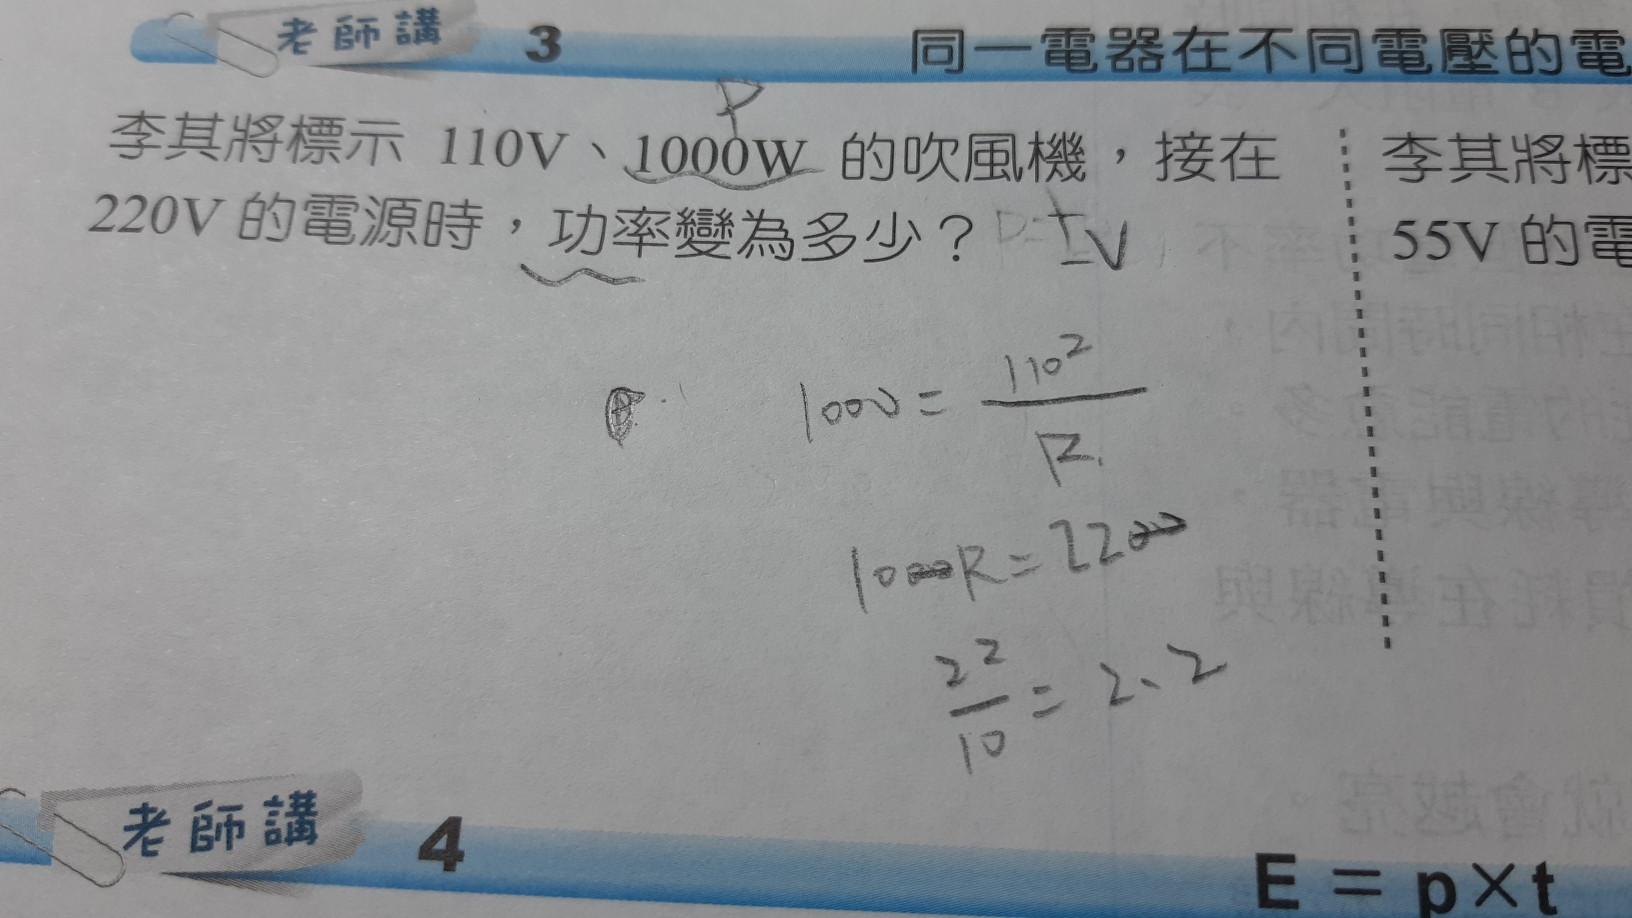 老師講 3 同一電器在不同電壓的電
P
李其將標示 110V、1000W 的吹風機,接在
220V 的電源時,功率變為多少? P=IV
1000 = 110²
R
1000R = 2200
22
10 = 2.2
李其將標
55V 的電
老師講 4 E = p×t